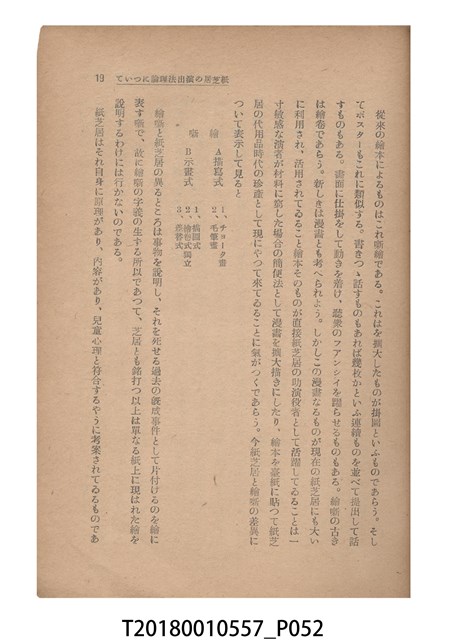 19　紙芝居の演出法理論について
從來の繪本によるものはこれ噺繪である。これはを擴大したものが掛圖といふものであらう。そし
てポスターもこれに類似する。書きつゝ話すものもあれば幾枚かといふ連續ものを並べて提出して話
すものもある。畫面に仕掛をして動きを着け、聽衆のフアンシイを躍らせるものもある。繪噺の古き
は繪卷であらう。新しきは漫畫とも考へられよう。しかしこの漫畫なるものが現在の紙芝居にも大い
に利用され、活用されてゐること繪本そのものが直接紙芝居の助演役者として活躍してゐることは一
寸敏感な演者が材料に窮した場合の簡便法として漫畫を擴大描きにしたり、繪本を臺紙に貼つて紙芝
居の代用品時代の珍產として現にやつて來てゐることに氣がつくであらう。今紙芝居と繪噺の差異に
ついて表示して見ると
繪噺
A 描寫式
1、チョーク畫
2、毛筆畫
B 示畫式
1、掛圖式
2、繪卷式獨立
3、
繪噺と紙芝居の異るところは事物を說明し、それを死せる過去の旣成事件として片付けるのを繪に
表す噺で、故に繪噺の字義の生する所以であつて、芝居とも銘打つ以上は單なる紙上に現はれた繪を
說明するわけには行かないのである。
紙芝居はそれ自身に原理があり、內容があり、兒童心理と符合するやうに考案されてゐるものであ
T20180010557_P052